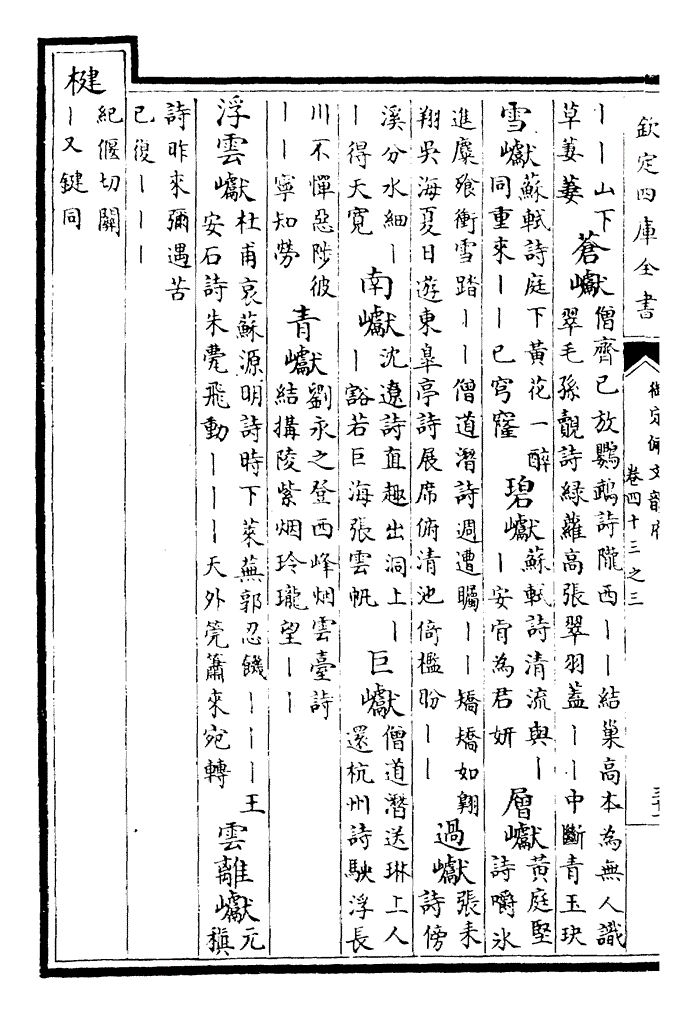 欽定四庫全書
御定佩文韻府
卷四十三之三
丨丨山下
草萋萋
蒼巘
僧齊已放鸚鵡詩隴西丨丨結巢高本為無人識
翠毛孫覿詩綠蘿高張翠羽蓋丨丨中斷青玉玦
雪巘
蘇軾詩庭下黃花一醉
同重來丨丨已穹窿
碧巘
蘇軾詩清流與丨
丨安肯為君妍
層巘
黃庭堅
詩嚼氷
進糜飱衝雪踏丨丨僧道潛詩週遭矚丨丨矯矯如翺
翔吳海夏日遊東臯亭詩展席俯清池倚檻盼丨丨
過巘
張耒
詩傍
溪分水細丨
丨得天寬
南巘
沈遼詩直趣出洞上丨
丨豁若巨海張雲帆
巨巘
僧道潛送琳上人
還杭州詩駛浮長
川不憚惡陟彼
丨丨寧知勞
青巘
劉永之登西峰烟雲臺詩
結搆陵紫烟玲瓏望丨丨
浮雲巘
杜甫哀蘇源明詩時下萊蕪郭忍饑丨丨丨王
安石詩朱甍飛動丨丨丨天外筦簫來宛轉
雲離巘
元
稹
詩昨來彌遇苦
已復丨丨丨
楗
紀偃切關
丨又鍵同